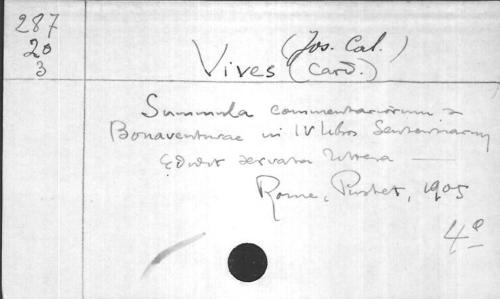 287
20
3
(Jos. Cal.)
Vives (Card.)
Summula commentariorum s
Bonaventurae in IV libros Sententiarum
Edidit servata littera —
Rome, Pustet, 1905
4º